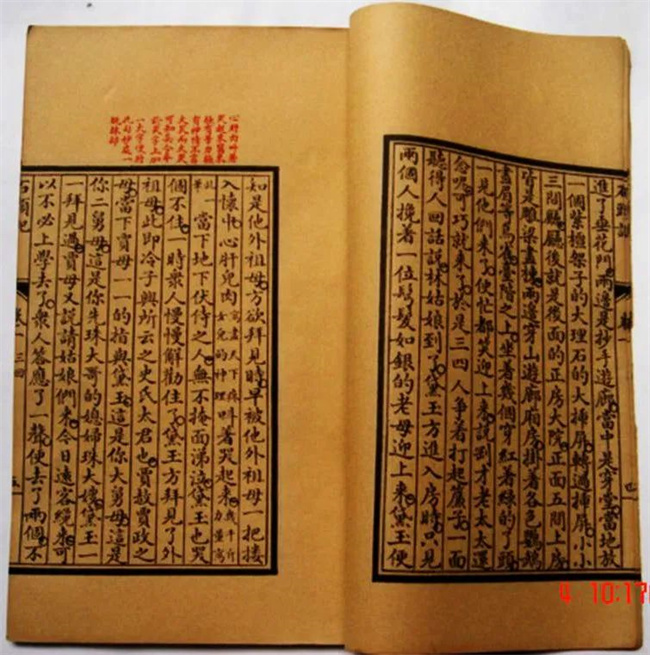 進了垂花門兩邊是抄手遊廊當中是穿堂當地放
一個紫檀架子的大理石的大插屏轉過插屏小小
三間廳廳後就是後面的正房大院正面五間上房
皆是雕梁畫棟兩邊穿山遊廊廂房掛着各色鸚鵡
畫眉等鳥雀臺階之上坐着幾個穿紅着綠的丫頭
一見他們來了便忙都笑迎上來說剛才老太太還
念呢可巧就來了於是三四人爭着打起簾子一面
聽得人回話說林姑娘到了黛玉方進入房時只見
兩個人攙着一位鬢髮如銀的老母迎上來黛玉便
知是他外祖母方欲拜見時早被他外祖母一把摟
入懷中心肝兒肉寫盡天下疼女兒的神理叫着哭起來幾千斤力量寫
此一筆當下地下伏侍之人無不掩面涕泣黛玉也哭
個不住一時衆人慢慢解勸住了黛玉方拜見了外
祖母此即冷子興所云之史氏太君也賈赦賈政之
母當下賈母一一的指與黛玉這是你大舅母這是
你二舅母這是你先珠大哥的媳婦珠大嫂黛玉一
一拜見過賈母又說請姑娘們來今日遠客纔來可
以不必上學去了衆人答應了一聲便去了兩個不
石頭記 卷一 三回 五
4 10:17